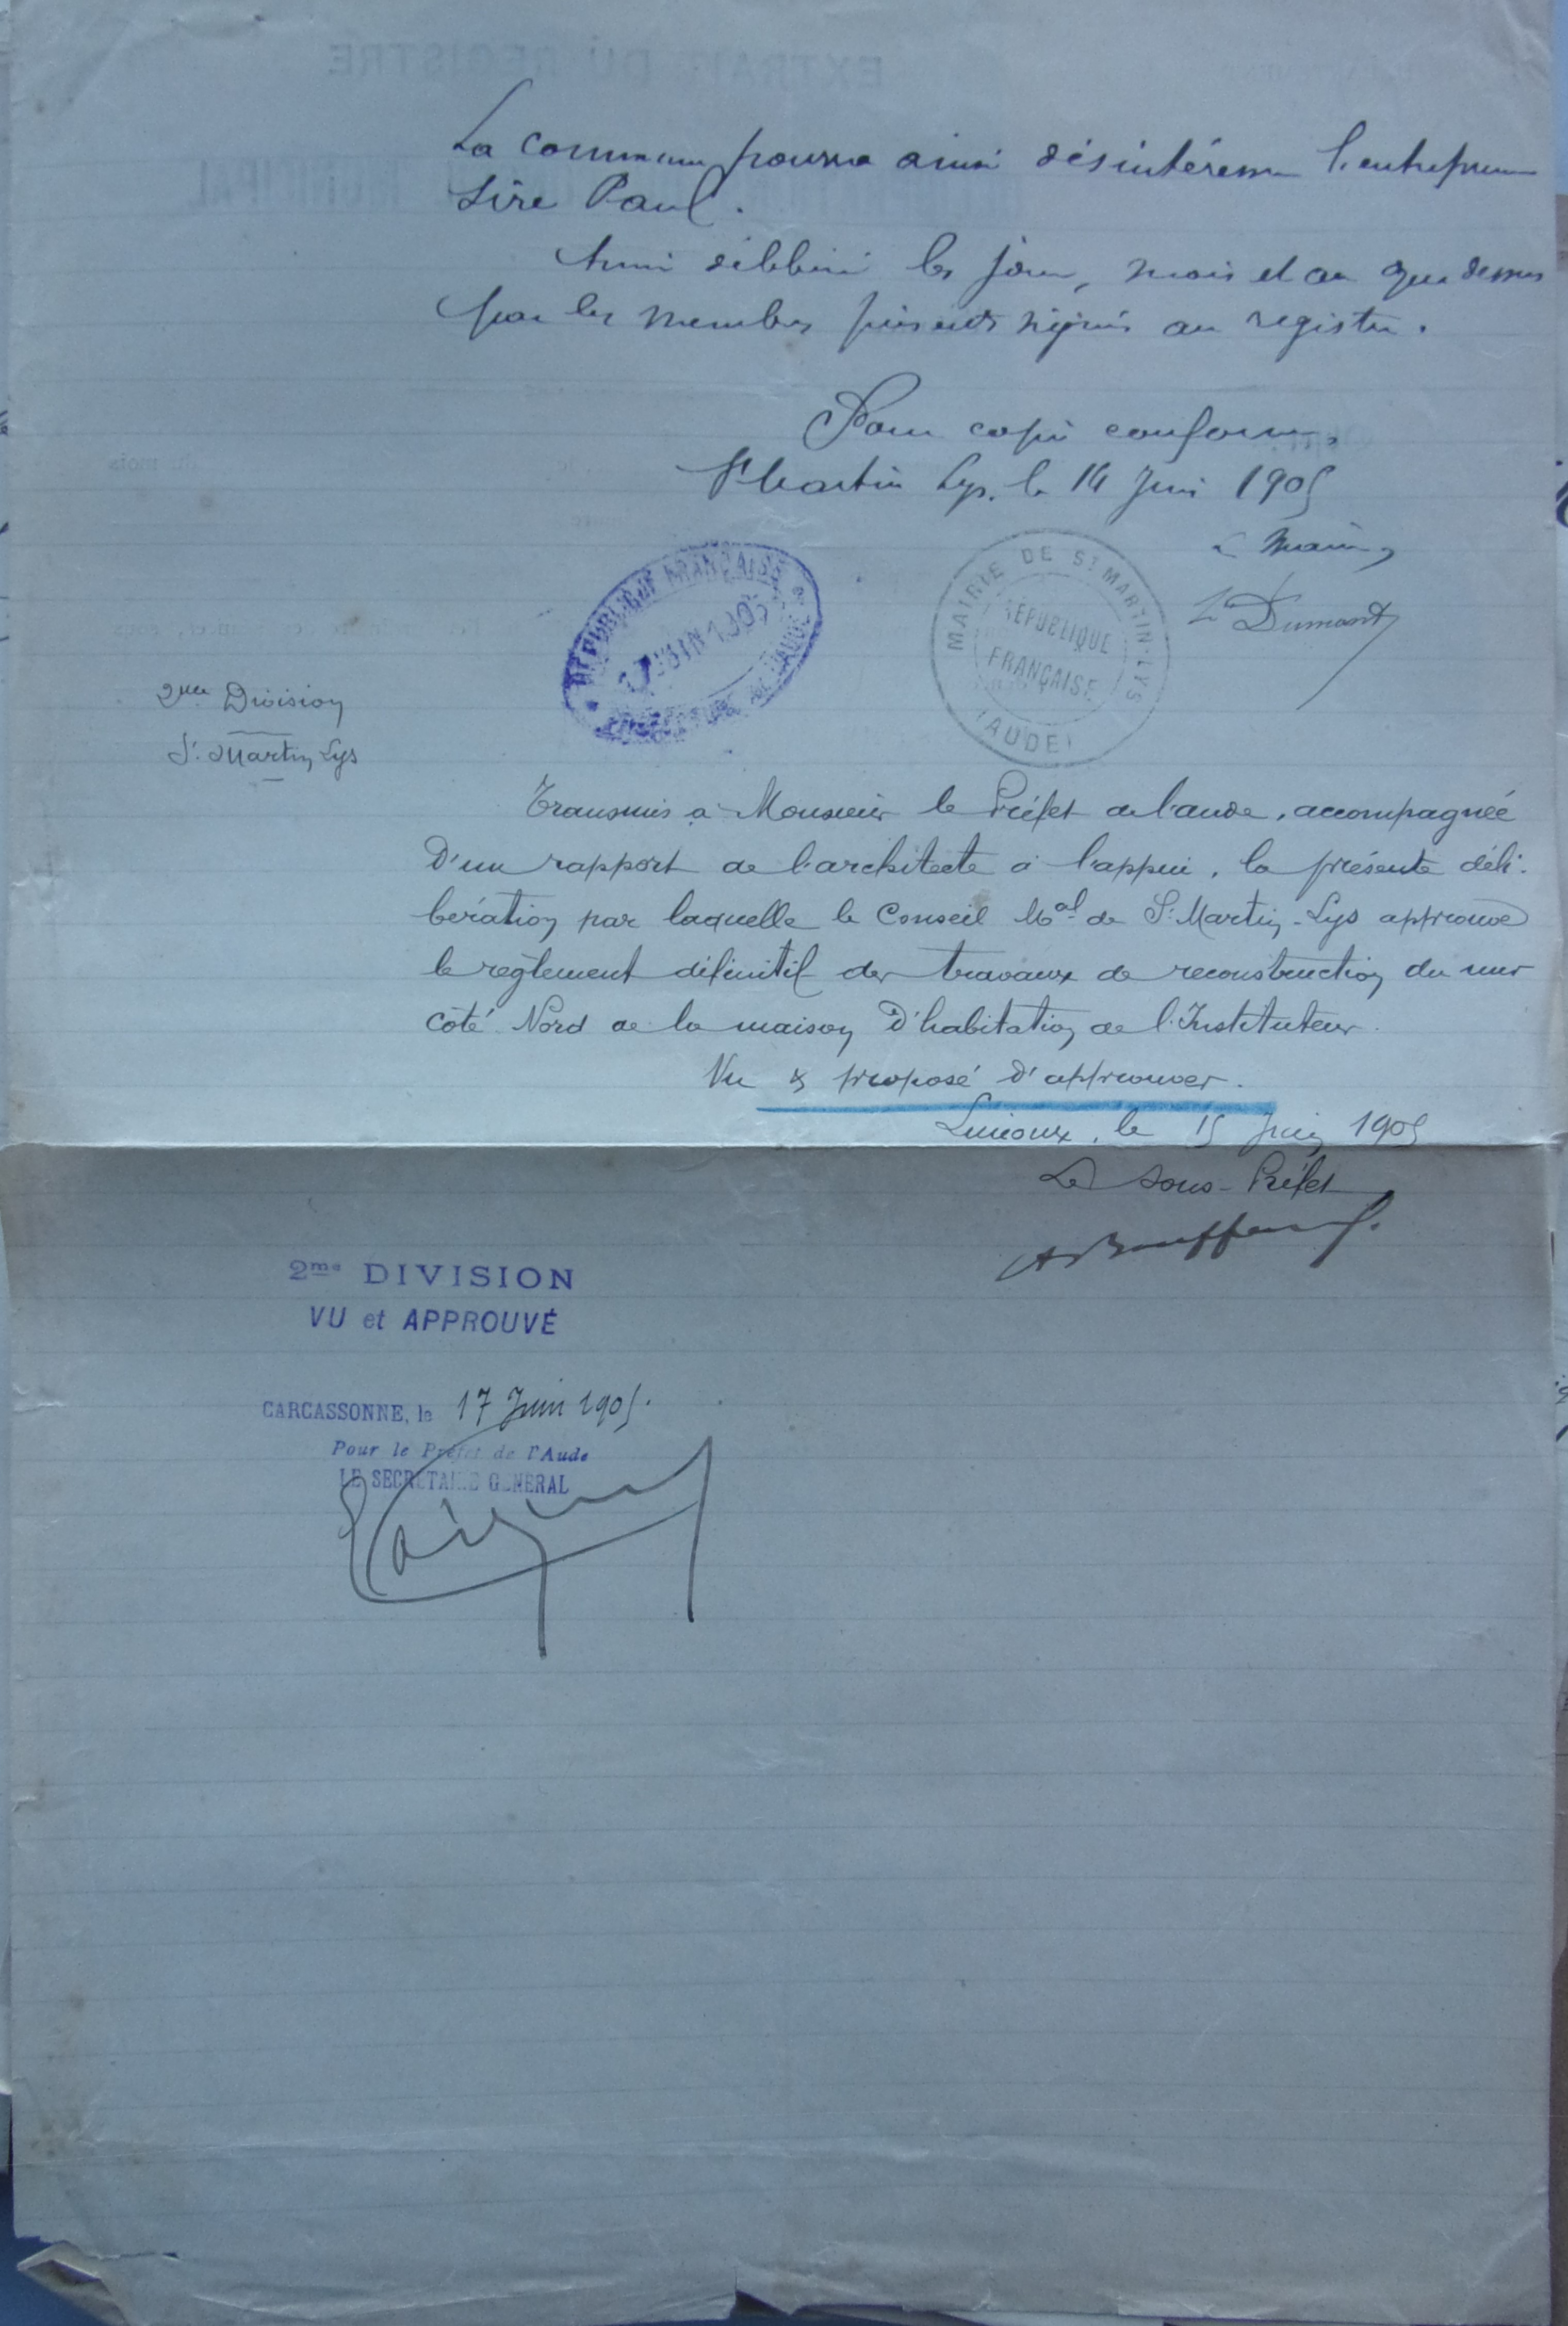 La commune pourra ainsi désintéresser l'entrepreneur
Sire Paul.
Ainsi délibéré les jour, mois et an que dessus
par les membres présents signés au registre.
Pour copie conforme,
St Martin Lys, le 14 Juin 1905
Le Maire,
Dumont
RÉPUBLIQUE FRANÇAISE
17 JUIN 1905
PRÉFECTURE DE L'AUDE
MAIRIE DE ST MARTIN-LYS
RÉPUBLIQUE
FRANÇAISE
(AUDE)
2me Division
St. Martin Lys
Transmis à Monsieur le Préfet de l'aude, accompagnée
D'un rapport de l'architecte à l'appui, la présente déli-
bération par laquelle le Conseil Mal de St Martin-Lys approuve
le règlement définitif des travaux de reconstruction du mur
côté Nord de la maison D'habitation de l'Instituteur.
Vu & proposé d'approuver.
Limoux, le 15 Juin 1905
Le Sous-Préfet
2me DIVISION
VU et APPROUVÉ
CARCASSONNE, le 17 Juin 1905.
Pour le Préfet de l'Aude
LE SECRÉTAIRE GÉNÉRAL